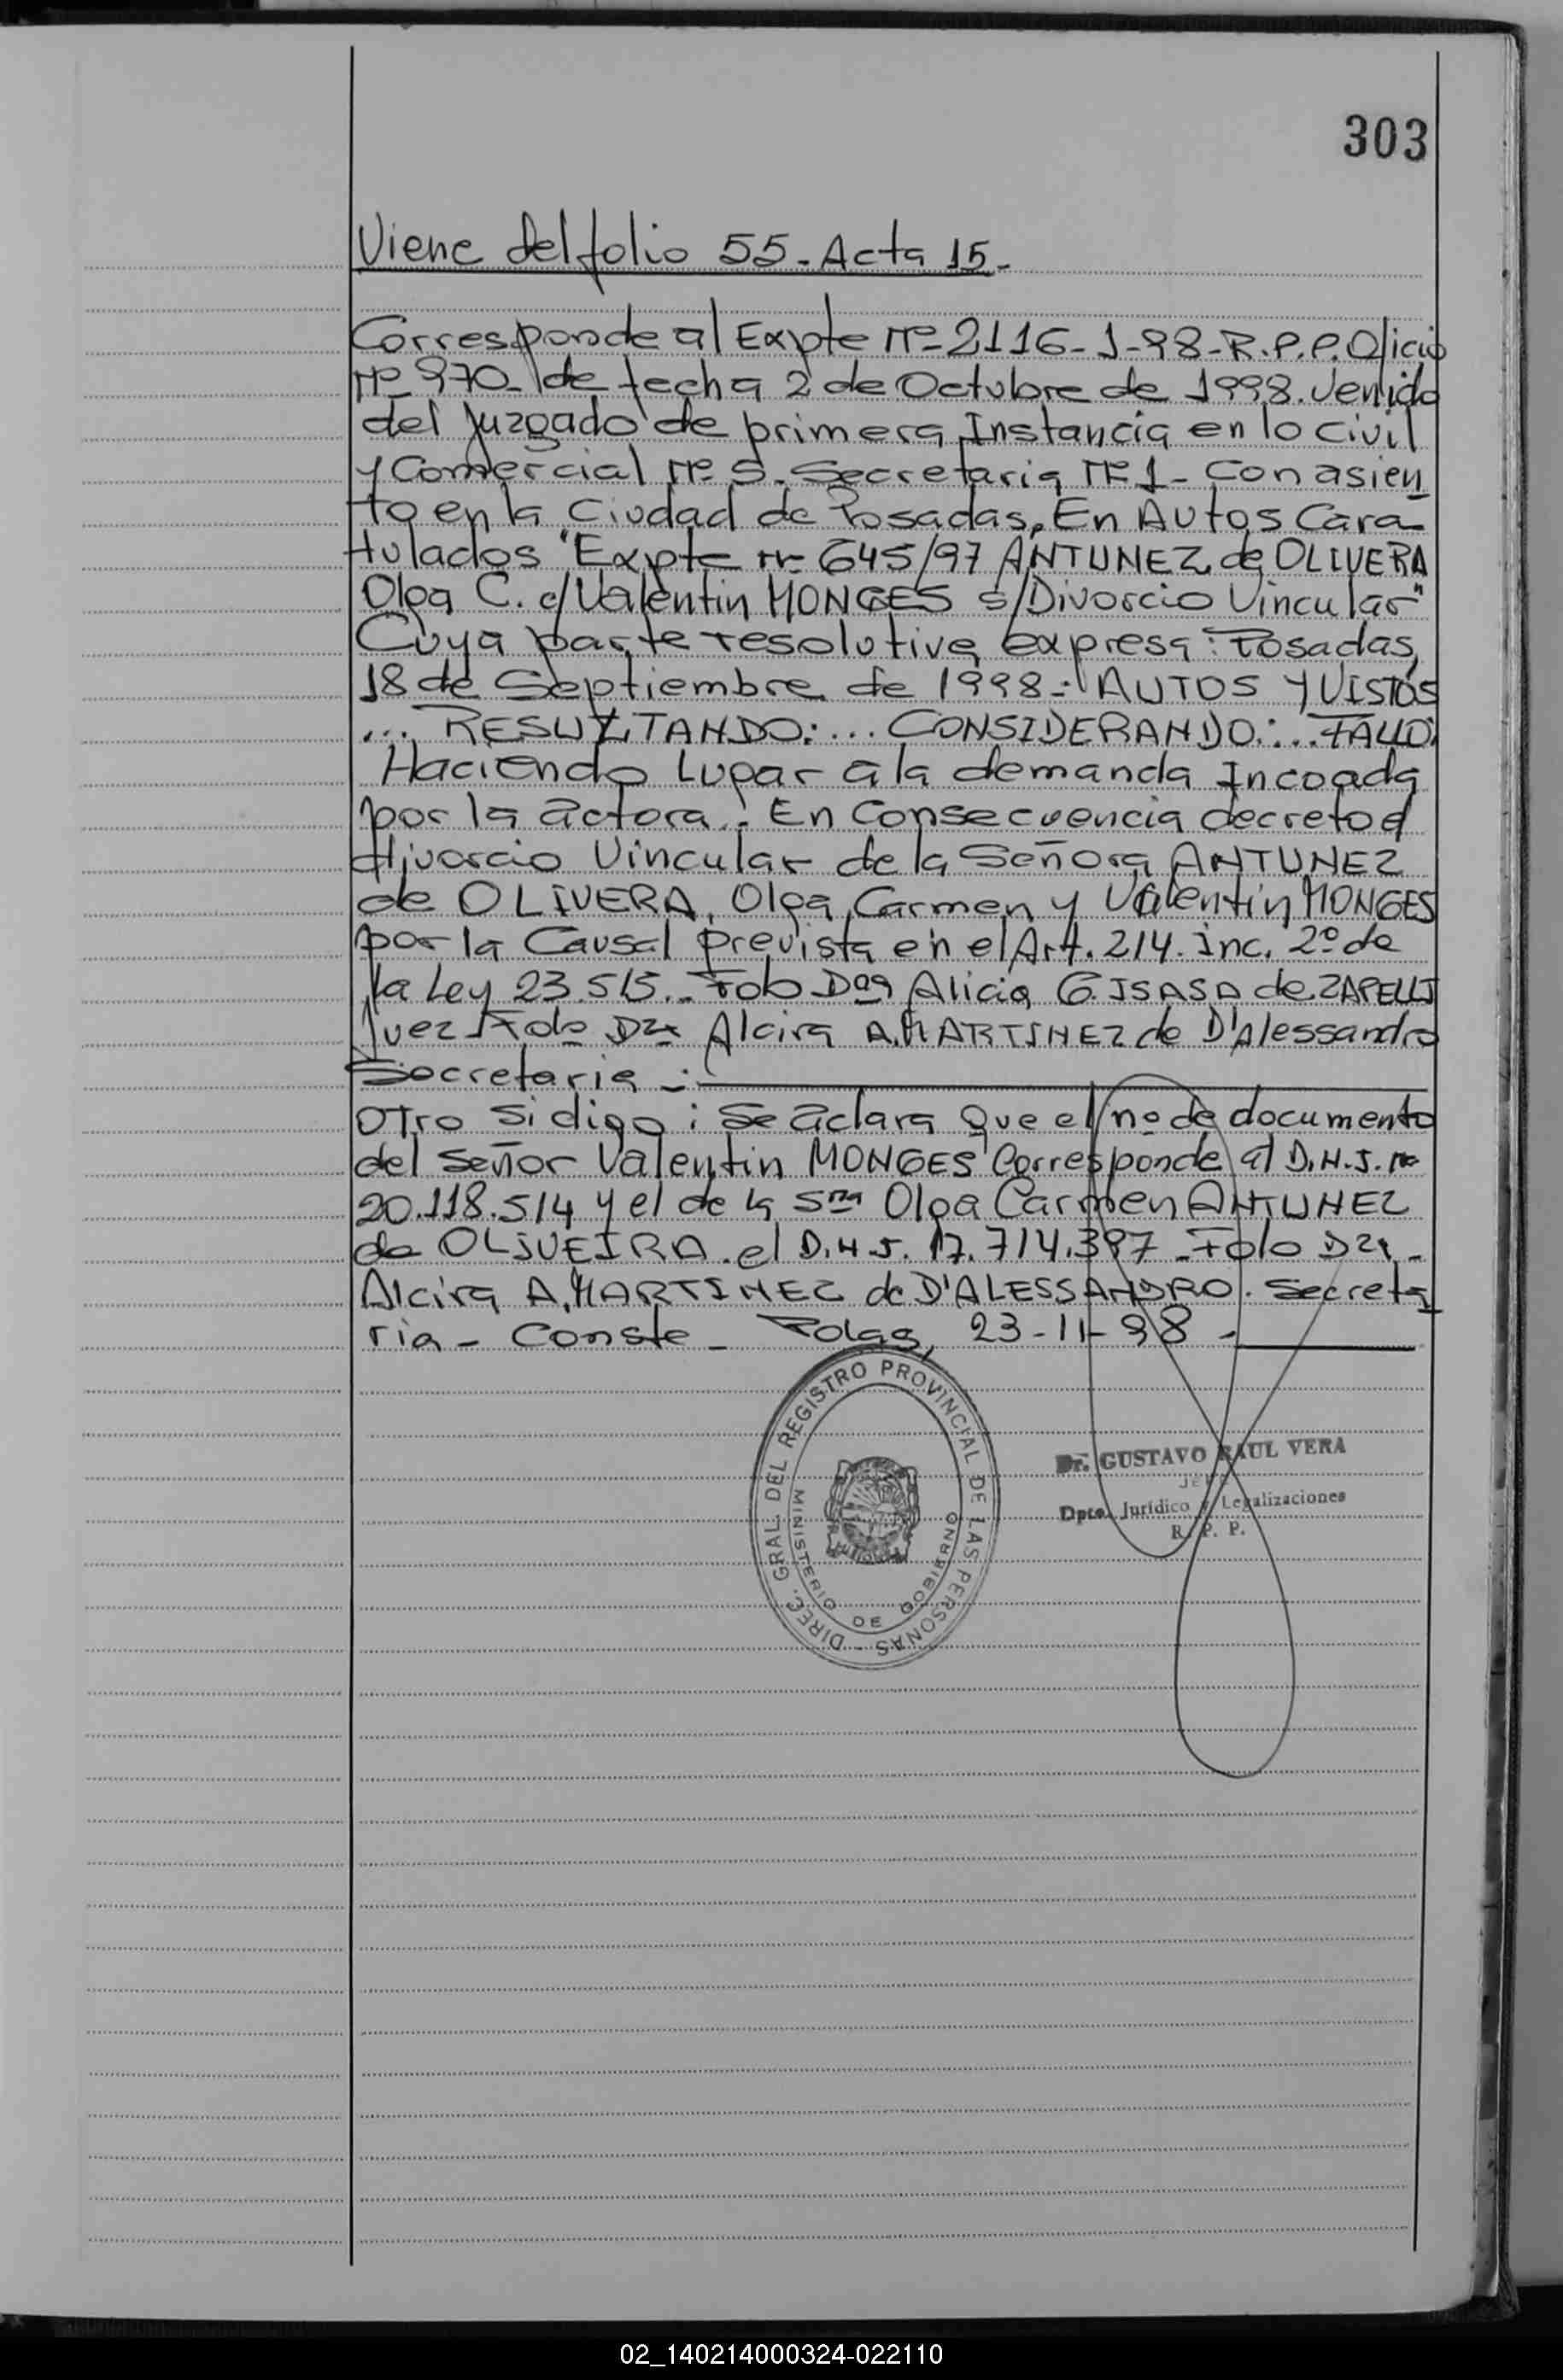 303
Viene del folio 55-Acta 15-
Corresponde al Expte Nº-2116-J-98-R.P.P. Oficio
Nº 970- de fecha 2 de Octubre de 1998. Venido
del Juzgado de primera Instancia en lo Civil
y Comercial Nº 5. Secretaria Nº 1- Con asien
to en la Ciudad de Posadas, En Autos Cara
tulados "Expte Nº 645/97 ANTUNEZ de OLIVERA
Olga C. c/ Valentin MONGES s/ Divorcio Vincular"
Cuya parte resolutiva expresa: Posadas,
18 de Septiembre de 1998-: AUTOS Y VISTOS
... RESULTANDO:... CONSIDERANDO:... FALLO:
Haciendo Lugar a la demanda Incoada
por la actora. En Consecuencia decreto el
divorcio Vincular de la Señora ANTUNEZ
de OLIVERA, Olga Carmen y Valentin MONGES
por la Causal prevista en el Art. 214. inc. 2º de
la Ley 23.515.- Fdo Dra Alicia G. ISASA de ZAPELLI
Juez Fdo Dra Alcira A. MARTINEZ de D'Alessandro
Secretaria -:
Otro si digo: Se aclara Que el nº de documento
del Señor Valentin MONGES Corresponde al D.N.I. Nº
20.118.514 y el de la Sra Olga Carmen ANTUNEZ
de OLIVEIRA. el D.N.I. 17.714.397 - Fdo Dra -
Alcira A. MARTINEZ de D'ALESSANDRO. Secreta
ria - Conste - Pdas, 23-11-98 -
DIREC. GRAL. DEL REGISTRO PROVINCIAL DE LAS PERSONAS -
MINISTERIO DE GOBIERNO
Dr. GUSTAVO RAUL VERA
JEFE
Dpto. Jurídico y Legalizaciones
R. P. P.
02_140214000324-022110